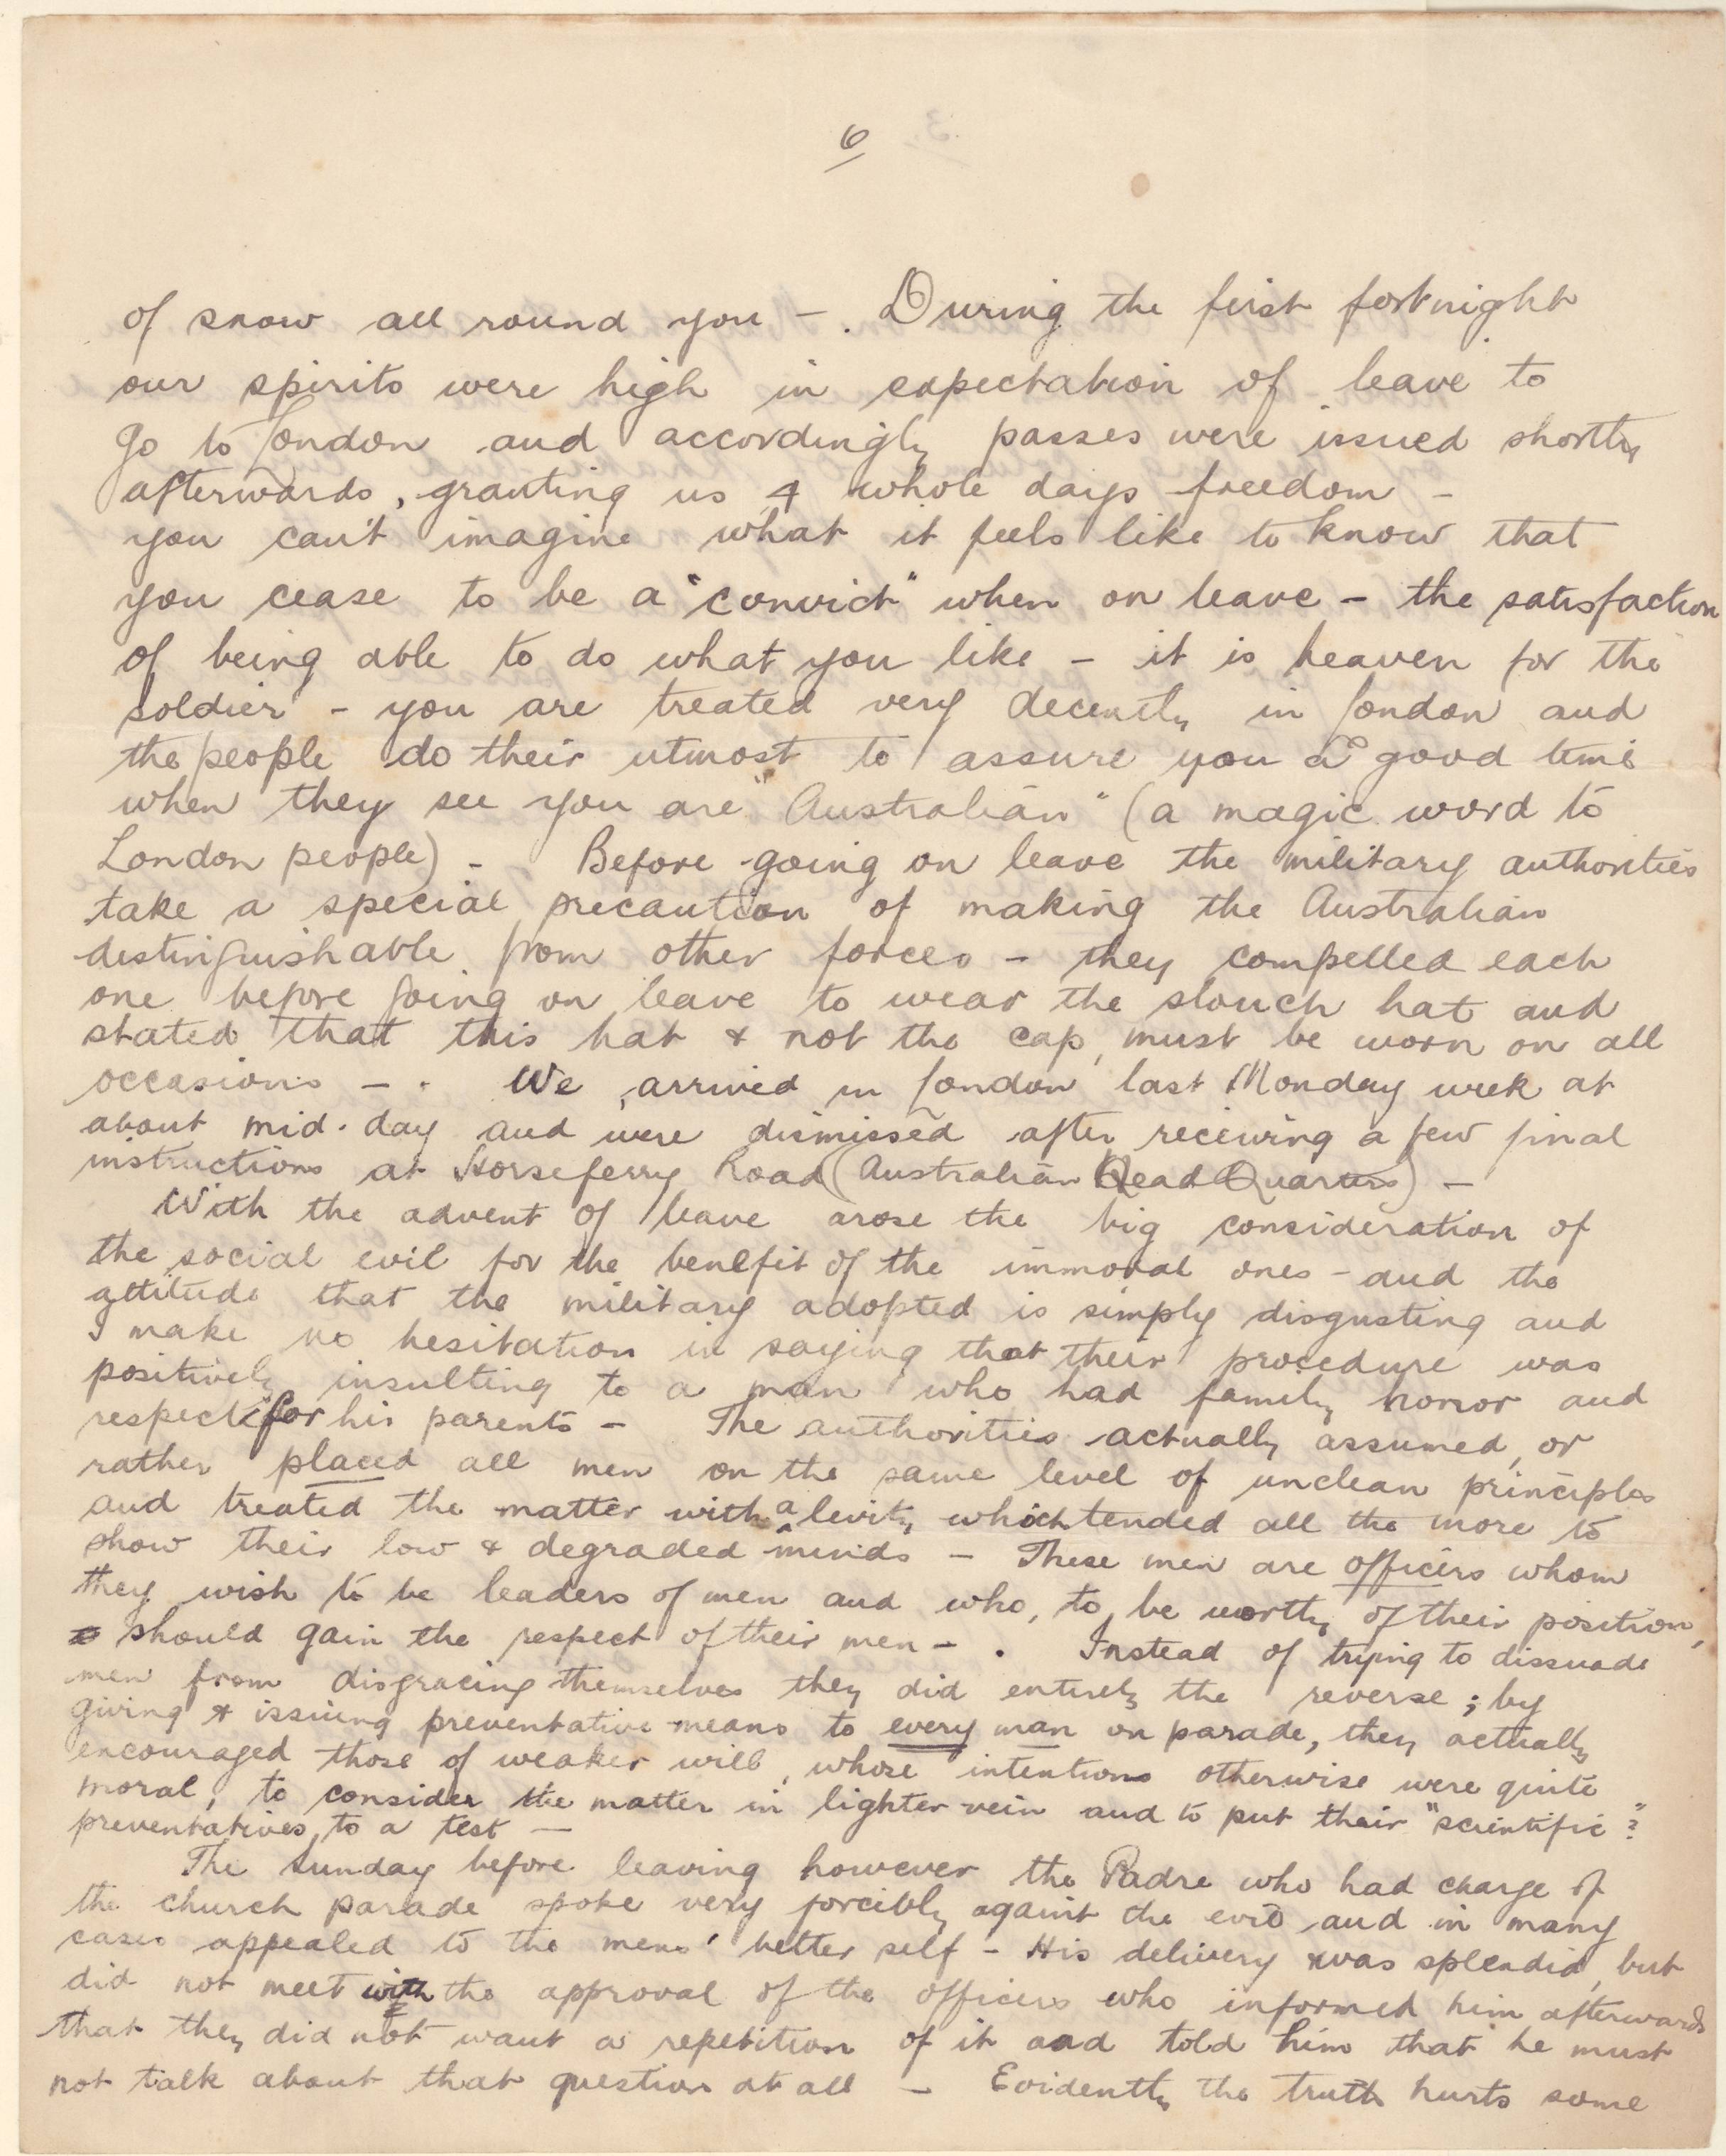 6
of snow all round you - . During the first fortnight
our spirits were high in expectation of leave to
go to London and accordingly passes were issued shortly
afterwards, granting us 4 whole days freedom -
you can't imagine what it feels like to know that
you cease to be a "convict" when on leave - the satisfaction
of being able to do what you like - it is heaven for the
soldier - you are treated very decently in London and
the people do their utmost to assure you a good time
when they see you are "Australian" (a magic word to
London people) - Before going on leave the military authorities
take a special precaution of making the Australian
distinguishable from other forces - they compelled each
one before going on leave to wear the slouch hat and
stated that this hat & not the cap, must be worn on all
occasions - . We arrived in London last Monday week at
about mid-day and were dismissed after receiving a few final
instructions at Horseferry Road (Australian Head Quarters) -
With the advent of leave arose the big consideration of
the social evil for the benefit of the immoral ones - and the
attitude that the military adopted is simply disgusting and
I make no hesitation in saying that their procedure was
positively insulting to a man who had family honor and
respect for his parents - The authorities actually assumed, or
rather placed all men on the same level of unclean principles
and treated the matter with a levity which tended all the more to
show their low & degraded minds - These men are officers whom
they wish to be leaders of men and who, to be worthy of their position,
should gain the respect of their men - . Instead of trying to dissuade
men from disgracing themselves they did entirely the reverse; by
giving & issuing preventative means to every man on parade, they actually
encouraged those of weaker will, whose intentions otherwise were quite
moral, to consider the matter in lighter vein and to put their "scientific"?
preventatives, to a test -
The Sunday before leaving however the Padre who had charge of
the church parade spoke very forcibly against the evil and in many
cases appealed to the mens' better self - His delivery was splendid, but
did not meet with the approval of the officers who informed him afterwards
that they did not want a repetition of it and told him that he must
not talk about that question at all - Evidently the truth hurts some